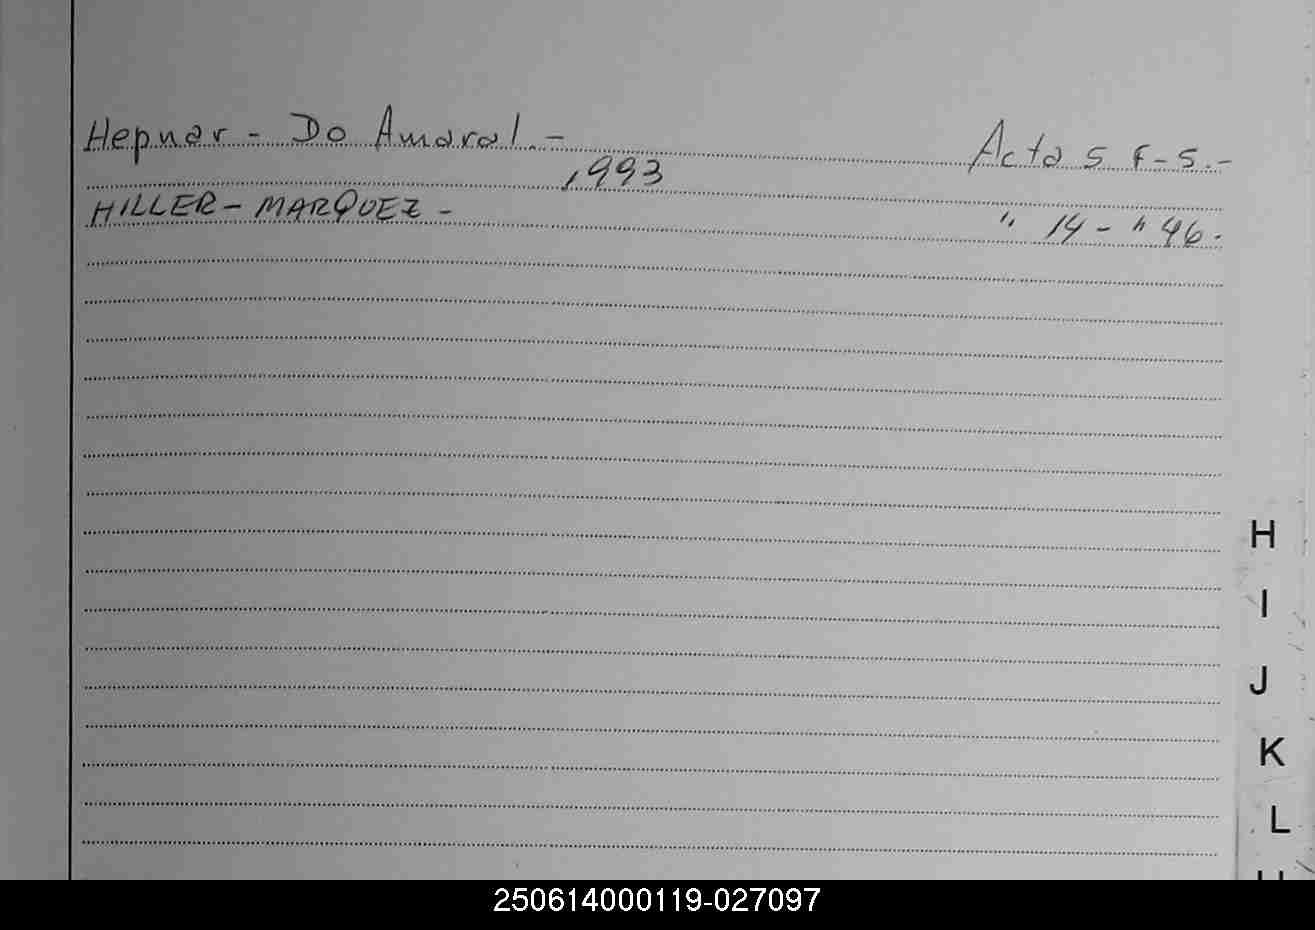 Hepnar - Do Amaral. - Acta 5 F-5.-
1993
HILLER - MARQUEZ - " 14 - " 46.
H
I
J
K
L
250614000119-027097